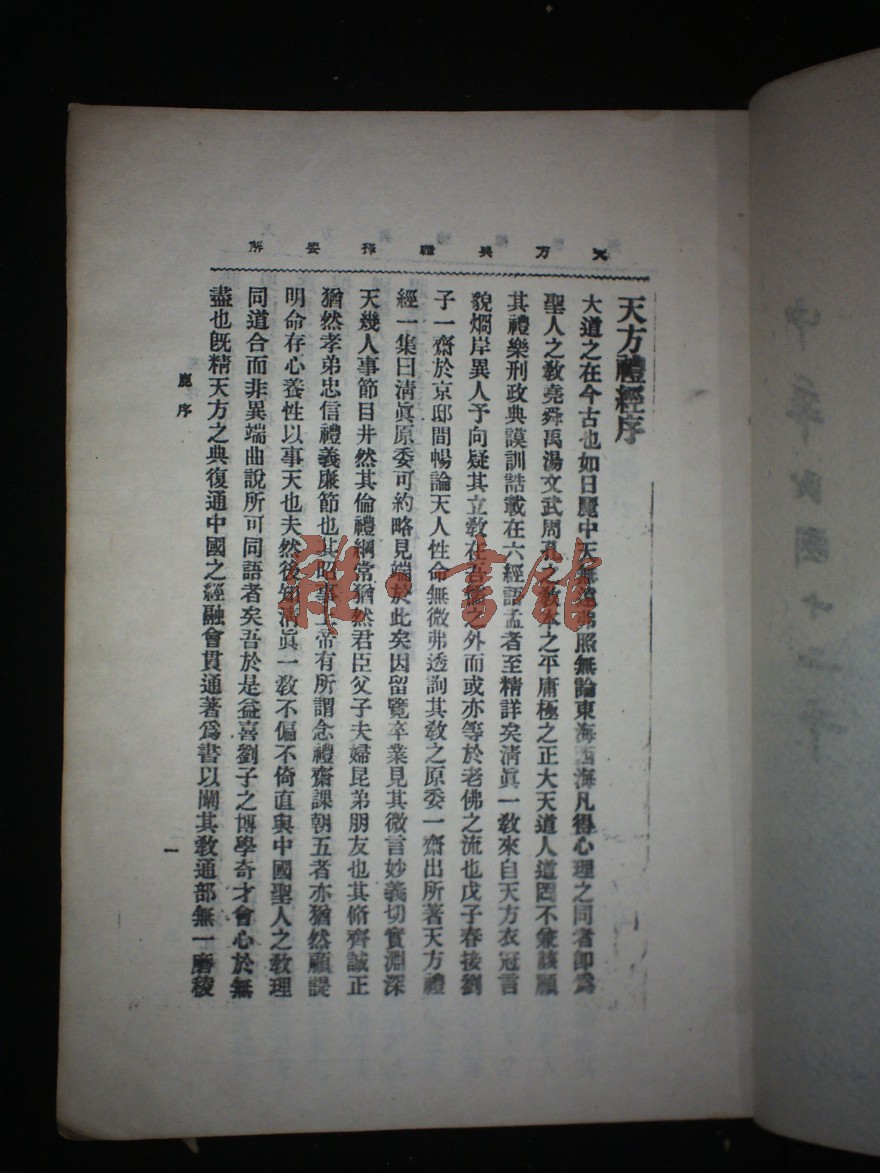 中華民國十二年
天方典禮擇要解
天方禮經序
大道之在今古也如日麗中天無遠弗照無論東海西海凡得心理之同者即爲
聖人之教堯舜禹湯文武周孔之教本之平庸極之正大天道人道罔不兼該顧
其禮樂刑政典謨訓誥載在六經語孟者至精詳矣清眞一教來自天方衣冠言
貌爓岸異人予向疑其立教在吾儒之外而或亦等於老佛之流也戊子春接劉
子一齋於京邸間暢論天人性命無微弗透詢其教之原委一齋出所著天方禮
經一集曰清眞原委可約略見端於此矣因留覽卒業見其微言妙義切實淵深
天幾人事節目井然其倫禮綱常猶然君臣父子夫婦昆弟朋友也其脩齊誠正
猶然孝弟忠信禮義廉節也其昭事上帝有所謂念禮齋課朝五者亦猶然顧諟
明命存心養性以事天也夫然後知清眞一教不偏不倚直與中國聖人之教理
同道合而非異端曲說所可同語者矣吾於是益喜劉子之博學奇才會心於無
盡也旣精天方之典復通中國之經融會貫通著爲書以闡其教通部無一磨稜
鹿序
一
雅書館